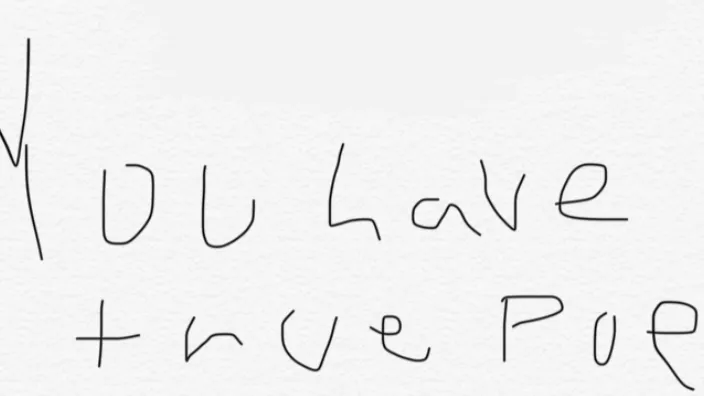 You have
true Poe